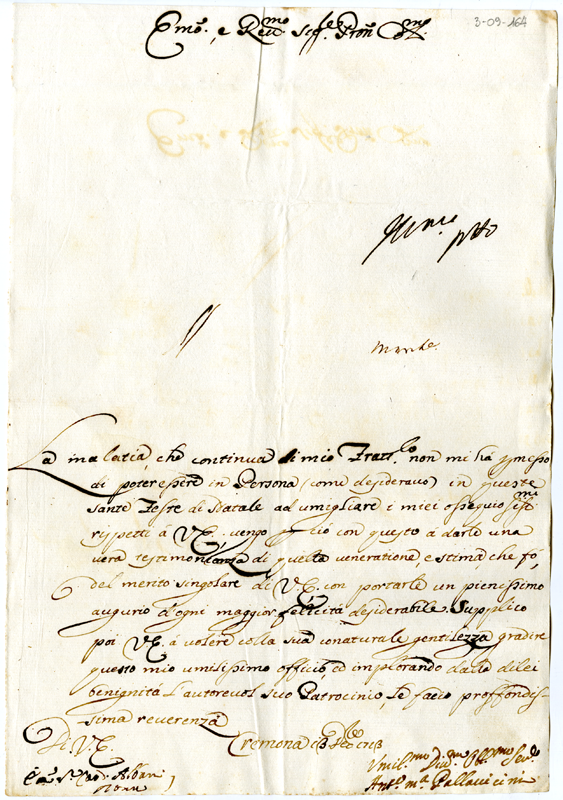 3-09-164
Em.o e Rev.mo Sig.re Pron
La malatia, che continua di mio Fratt.lo non mi há permesso
di poter essere in Persona (come desideravo) in queste
sante Feste di Natale ad umigliare i miei ossequiosis.mi
rispetti á V.E. vengo con questo a darle una
vera testimonianza di quella veneratione, e stima, che fò,
del merito singolare di V.E. con portarle un pienissimo
augurio d'ogni maggior felicitá desiderabile. Supplico
poi V.E. á volere colla sua conaturale gentilezza gradire
questo mio umilissimo officio, ed implorando dalla di lei
benignitá l'autorevol suo Patrocinio, le facio proffondis-
sima reverenza
Di V.E. Cremona
Albani Umil.mo Obl.mo Ser.
Roma Ant.o M.a Pallavicini